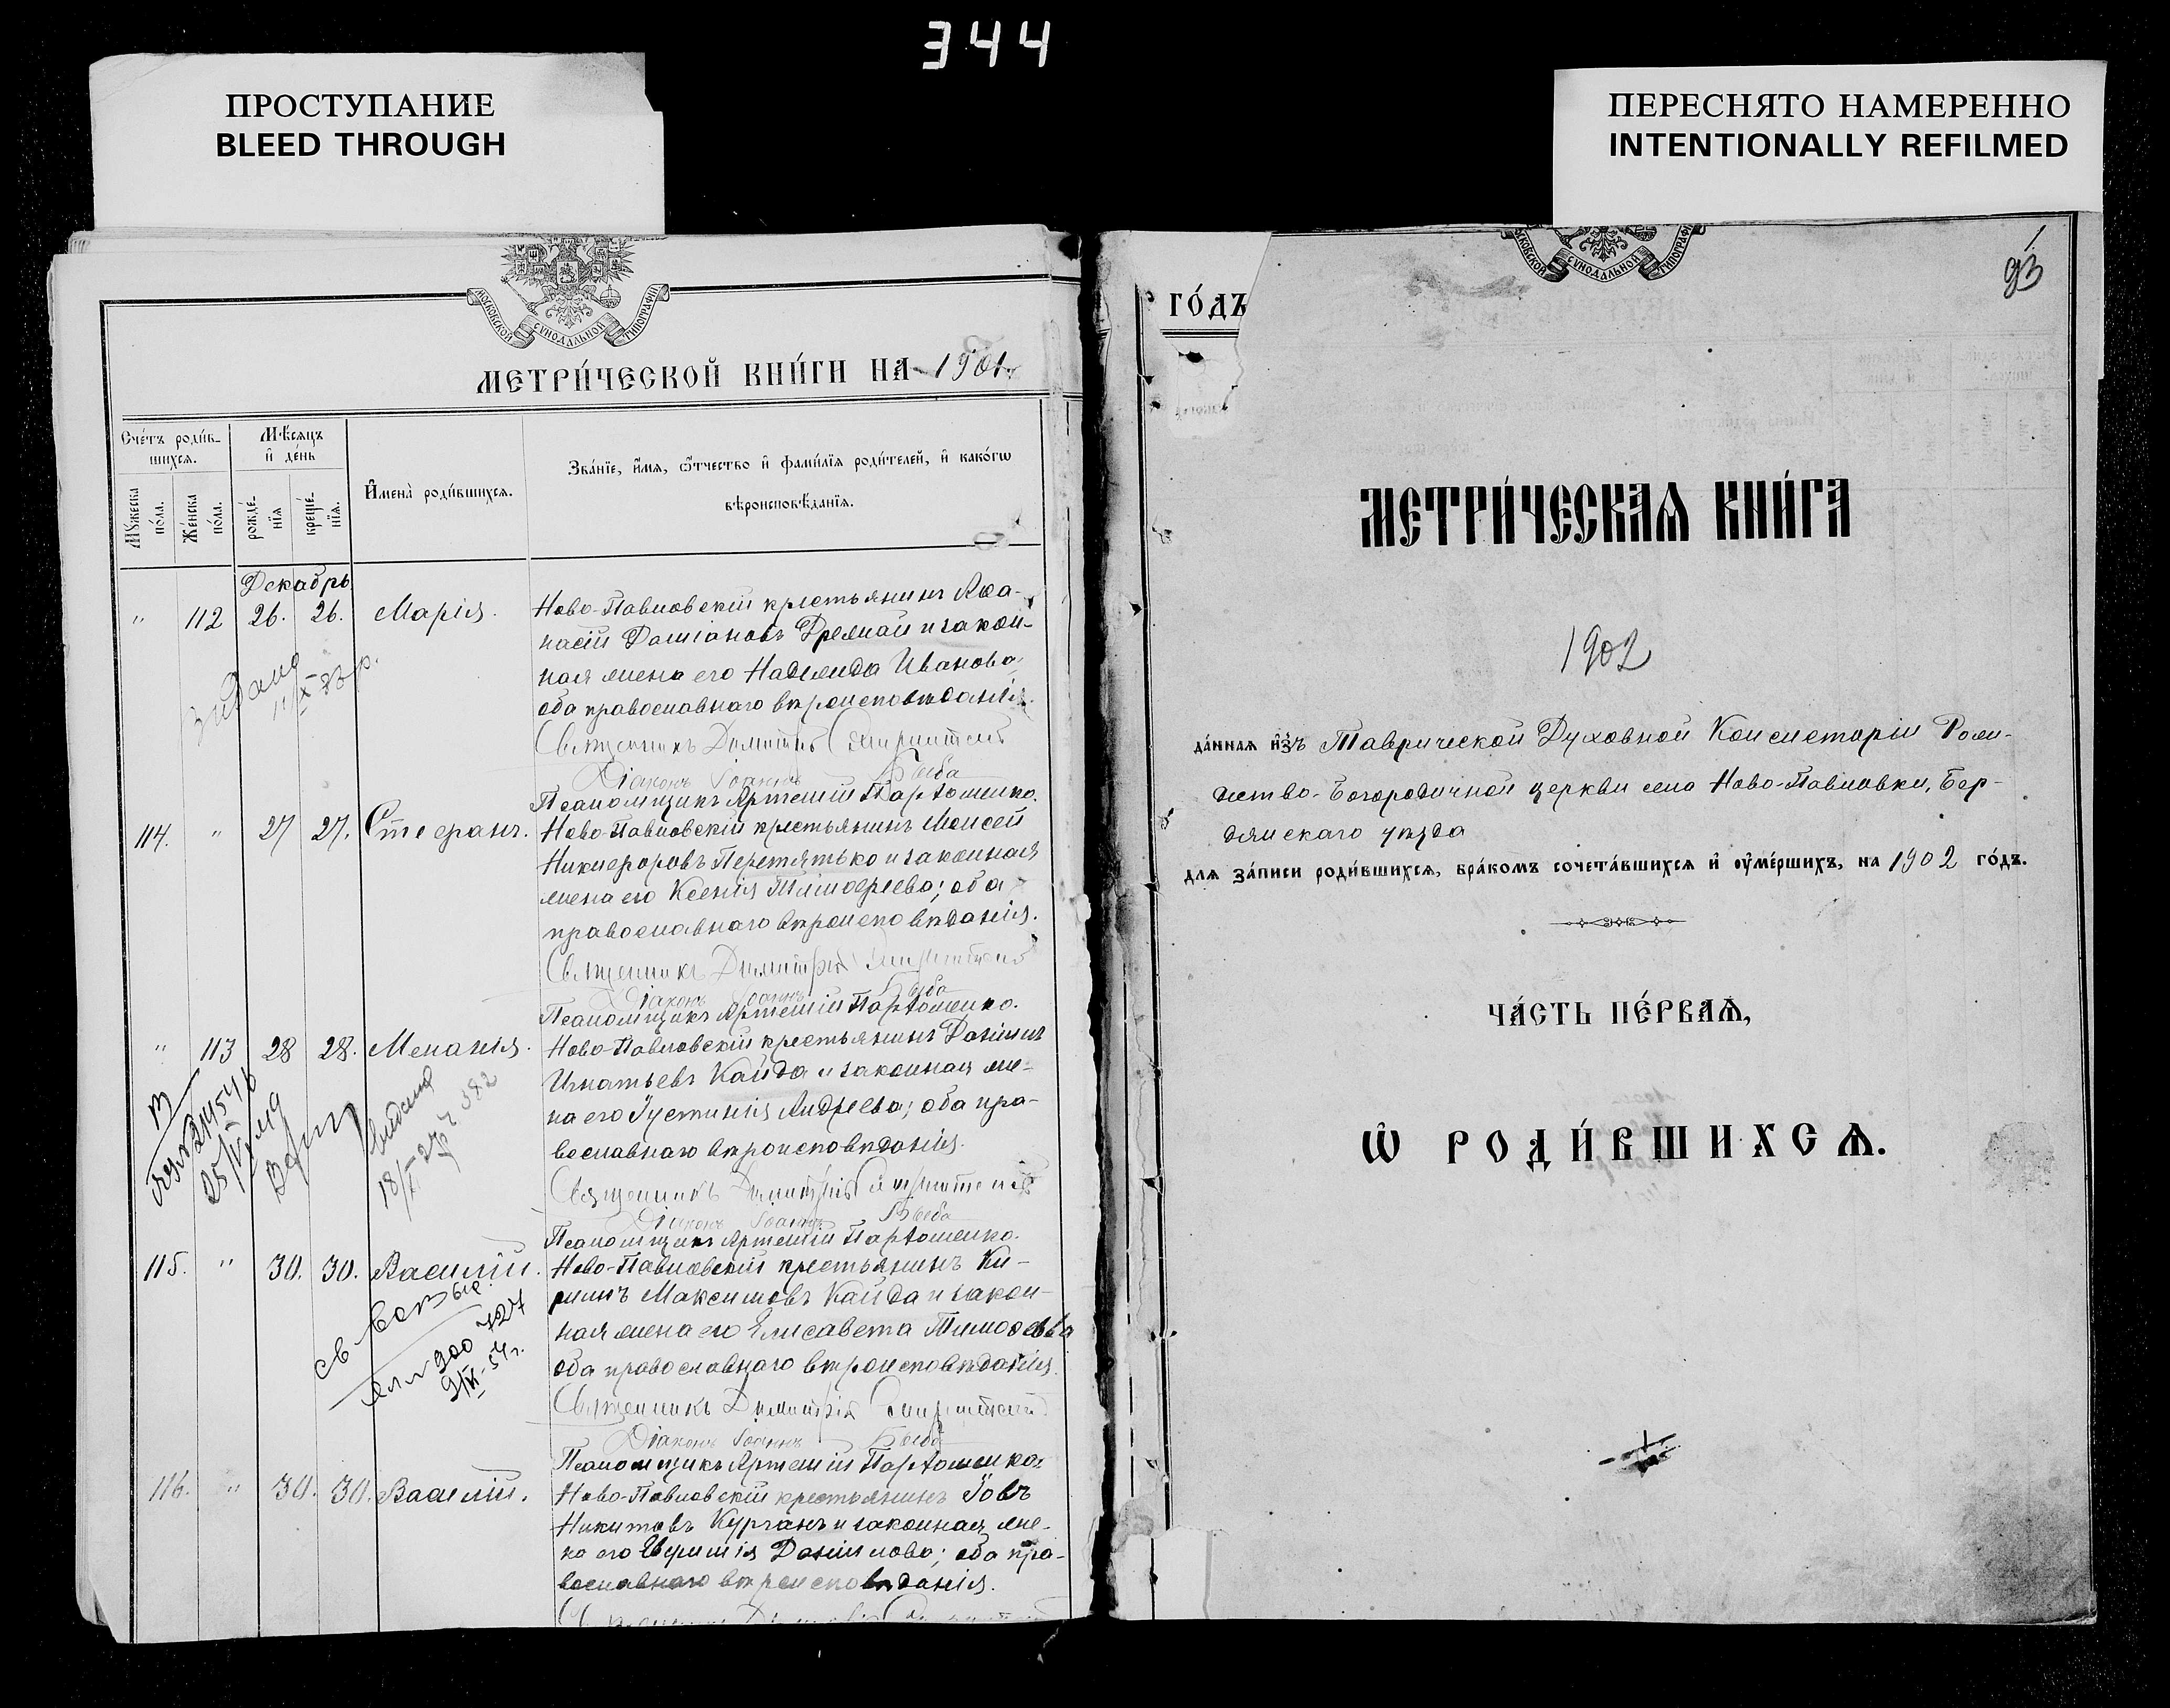 344
ПРОСТУПАНИЕ
BLEED THROUGH
ПЕРЕСНЯТО НАМЕРЕННО
INTENTIONALLY REFILMED
МОСКОВСКОЙ СѴНОДАЛЬНОЙ ТИПОГРАФІИ
МЕТРИ́ЧЕСКОЙ КНИ́ГИ НА 1901
Сче́тъ роди́в-
шихсѧ.
Мѣ́сѧцъ
и҆ де́нь
И҆мена̀ роди́вшихсѧ.
Зва́нїе, и҆́мѧ, ѻ҆́тчество и҆ фами́лїѧ роди́телей, и҆ како́гѡ
вѣроисповѣ́данїѧ.
Мꙋ́жеска
по́ла.
Же́нска
по́ла.
рожде́-
нїѧ
креще́-
нїѧ.
Декабрь
" 112 26. 26. Марія.
Ново-Павловскій крестьянинъ Аѳа-
насій Даміановъ Дремлой и закон-
ная жена его Надежда Иванова;
оба православнаго вѣроисповѣданія.
Священникъ Димитрій
Діаконъ Іоаннъ
Псаломщикъ Артемій Парѳоменко.
114. " 27 27. Стефанъ.
Ново-Павловскій крестьянинъ Моисей
Никифоровъ Перетятько и законная
жена его Ксенія Тимоѳеева; оба
православнаго вѣроисповѣданія.
Священникъ Димитрій
Діаконъ Іоаннъ
Псаломщикъ Артемій Парѳоменко.
" 113 28 28. Меланія.
Ново-Павловскій крестьянинъ Даніилъ
Игнатьевъ Кайда и законная же-
на его Іустинія Андреева; оба пра-
вославнаго вѣроисповѣданія.
Священникъ Димитрій
Діаконъ Іоаннъ
Псаломщикъ Артемій Парѳоменко.
115. " 30. 30. Василій.
Ново-Павловскій крестьянинъ Ки-
риллъ Максимовъ Кайда и закон-
ная жена его Елисавета Тимоѳеева
оба православнаго вѣроисповѣданія.
Священникъ Димитрій
Діаконъ Іоаннъ
Псаломщикъ Артемій Парѳоменко.
116. " 30. 30. Василій.
Ново-Павловскій крестьянинъ Іовъ
Никитовъ Курганъ и законная же-
на его Даніилова; оба пра-
вославнаго вѣроисповѣданія.
ГО́ДЪ
93
МЕТРИ́ЧЕСКАѦ КНИ́ГА
1902
да́ннаѧ и҆́зъ Таврической Духовной Консисторіи Рож-
дество-Богородичной церкви села Ново-Павловки, Бер-
дянскаго уѣзда
длѧ за́писи роди́вшихсѧ, бра́комъ сочета́вшихсѧ и҆ ᲂу҆ме́ршихъ, на 1902 го́дъ.
ЧА́СТЬ ПЕ́РВАѦ,
Ѽ РОДИ́ВШИХСѦ.